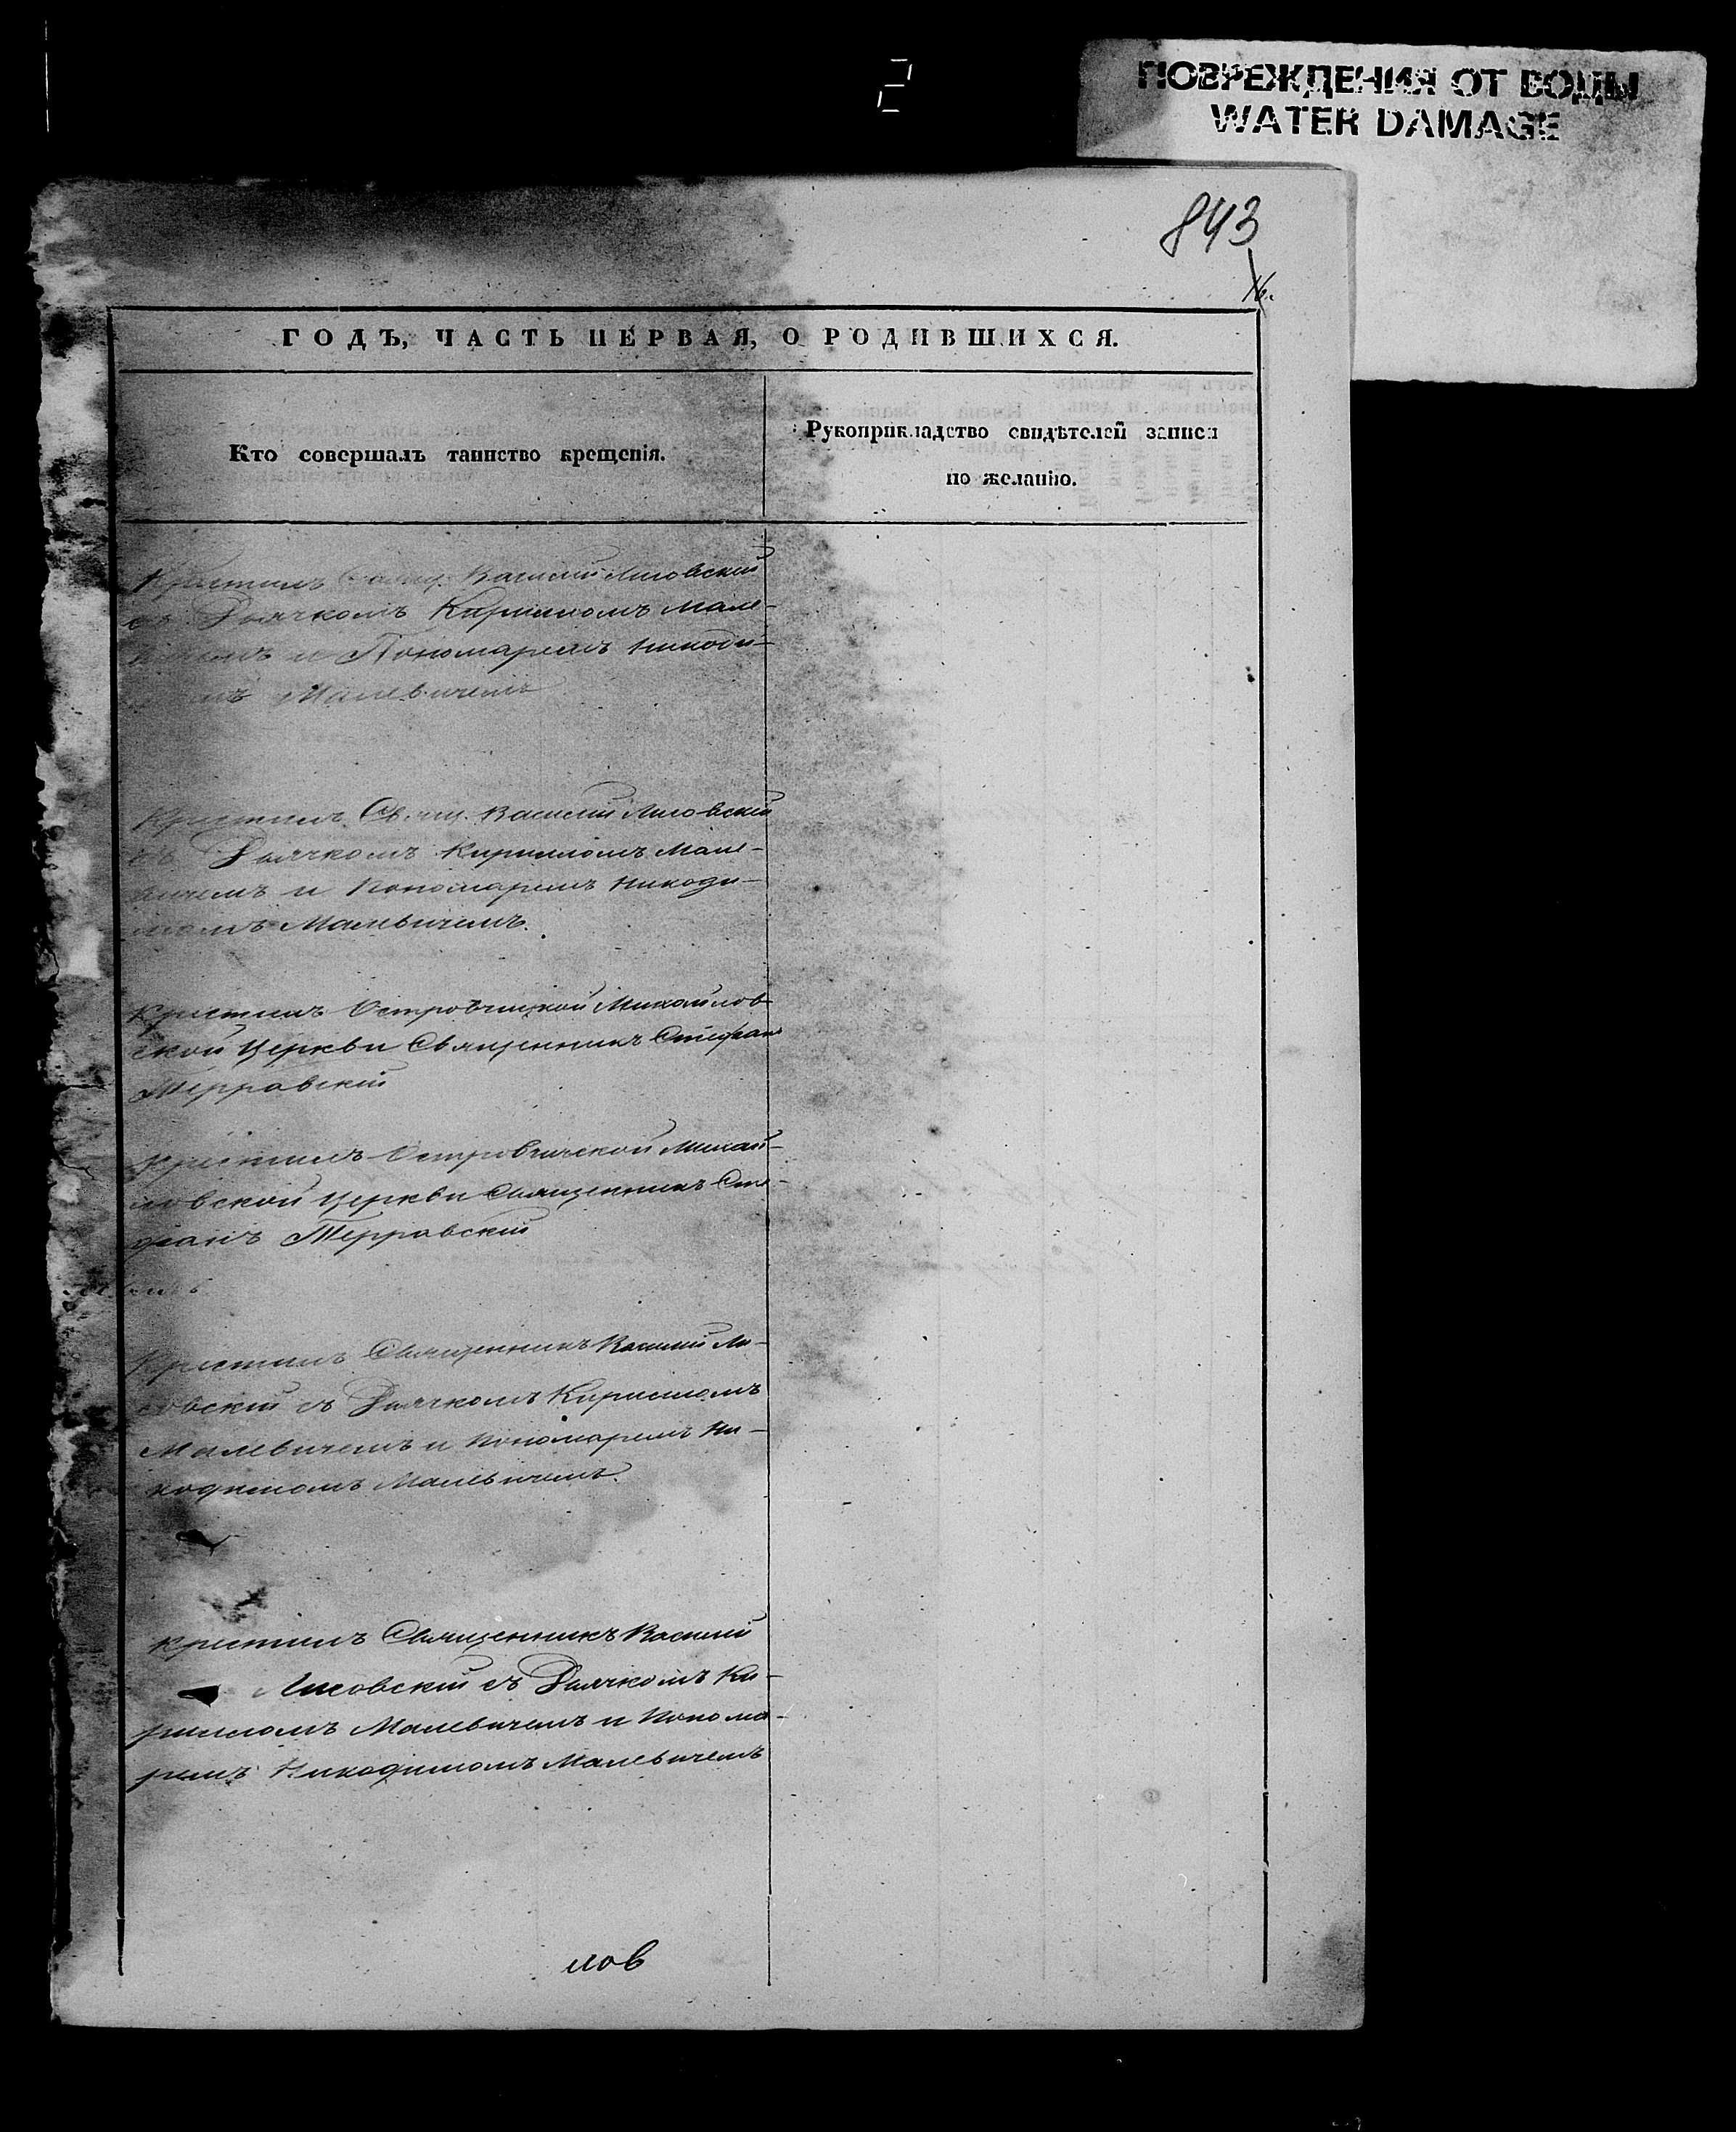 2
ПОВРЕЖДЕНИЯ ОТ ВОДЫ
WATER DAMAGE
843
ГОДЪ, ЧАСТЬ ПЕРВАЯ, О РОДИВШИХСЯ.
Кто совершалъ таинство крещенія.
Рукоприкладство свидѣтелей записи
по желанію.
Крестилъ Василій Лисовскій
съ Дьячкомъ Кирилломъ Мале-
вичемъ и Пономаремъ Никоди-
Малевичемъ
Крестилъ Свящ. Василій Лисовскій
съ Дьячкомъ Кирилломъ Мале-
вичемъ и Пономаремъ Никоди-
момъ Малевичемъ.
Крестилъ Михайлов-
ской Церкви Священникъ Стефанъ
Крестилъ Михай-
ловской Церкви Священникъ Сте-
фанъ
Крестилъ Священникъ Василій Ли-
совскій съ Дьячкомъ Кирилломъ
Малевичемъ и Пономаремъ Ни-
кодимомъ Малевичемъ.
Крестилъ Священникъ Василій
Лисовскій съ Дьячкомъ Ки-
рилломъ Малевичемъ и Понома-
ремъ Никодимомъ Малевичемъ
лов